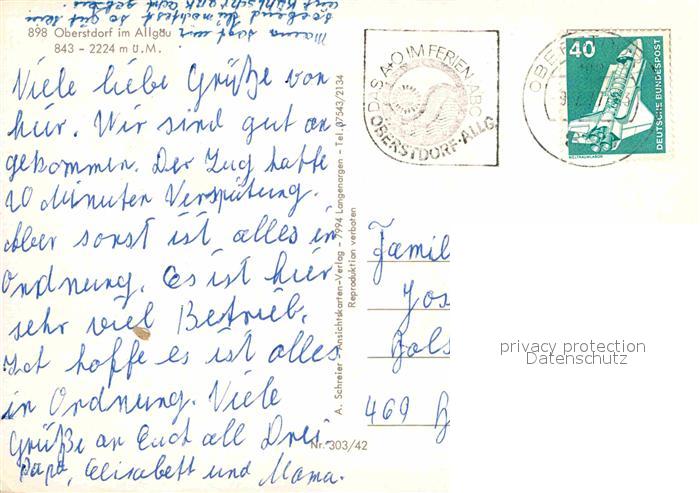 898 Oberstdorf im Allgäu
843 - 2224 m ü.M.
Viele liebe Grüße von
hier. Wir sind gut an
gekommen. Der Zug hatte
20 Minuten Verspätung.
Aber sonst ist alles in
Ordnung. Es ist hier
sehr viel Betrieb.
Ich hoffe es ist alles
in Ordnung. Viele
Grüße an Euch all Drei
Papa, Elisabett und Mama.
Mama sagt nur
soebend Du möchtest so gut sein
A. Schreier - Ansichtskarten-Verlag - 7994 Langenargen - Tel. 07543/2134
Reproduktion verboten
Nr. 303/42
DAS A+O IM FERIEN ABC
OBERSTDORF-ALLG.
OBER
40
DEUTSCHE BUNDESPOST
WELTRAUMLABOR
Famil
Jos
Bols
469 H
privacy protection
Datenschutz